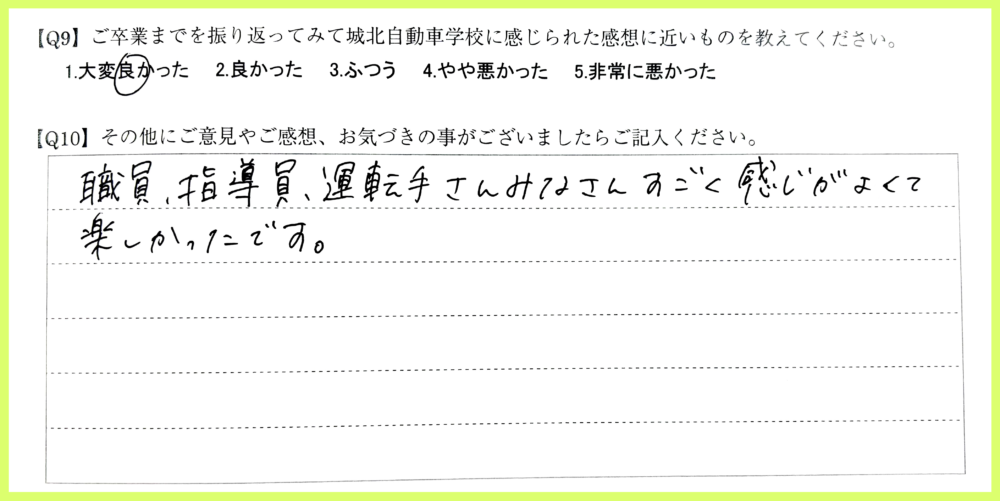 【Q9】ご卒業までを振り返ってみて城北自動車学校に感じられた感想に近いものを教えてください。
1.大変良かった 2.良かった 3.ふつう 4.やや悪かった 5.非常に悪かった
【Q10】その他にご意見やご感想、お気づきの事がございましたらご記入ください。
職員、指導員、運転手さんみなさんすごく感じがよくて
楽しかったです。